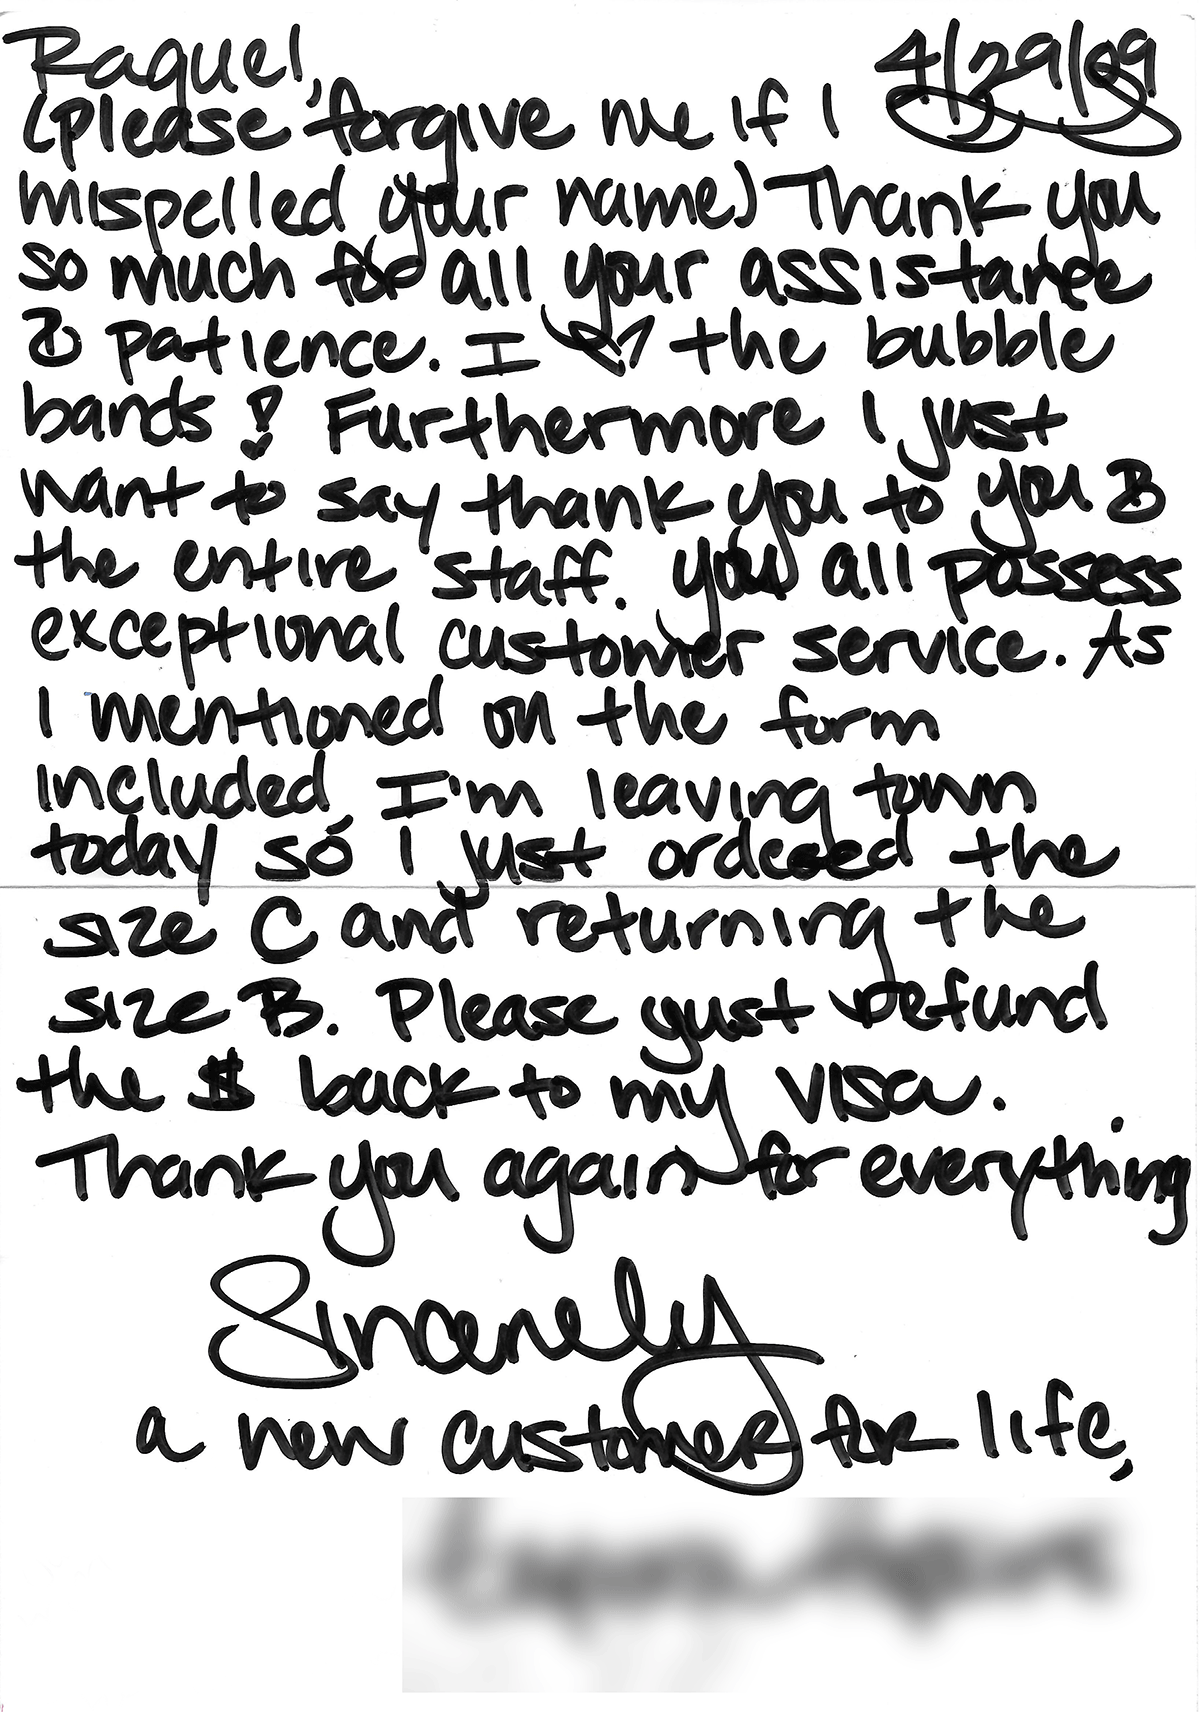 Raquel, 4/29/09
(please forgive me if I
mispelled your name) Thank you
so much for all your assistance
& patience. I ♡ the bubble
bands! Furthermore I just
want to say thank you to you &
the entire staff. you all possess
exceptional customer service. As
I mentioned on the form
included, I'm leaving town
today so I just ordered the
size C and returning the
size B. Please just refund
the $ back to my visa.
Thank you again for everything
Sincerely
a new customer for life,